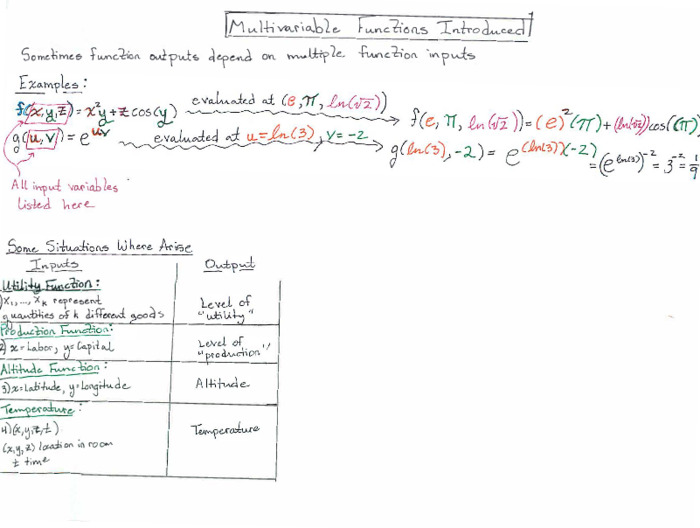 Multivariable Functions Introduced
Sometimes function outputs depend on multiple function inputs
Examples:
f(x,y,z) = x²y + z cos(y) evaluated at (e, π, ln(√2)) → f(e, π, ln(√2)) = (e)²(π) + (ln(√2))cos((π))
g(u,v) = e^{uv} evaluated at u = ln(3), v = -2 → g(ln(3), -2) = e^{(ln(3))(-2)} = (e^{ln(3)})^{-2} = 3^{-2} = 1/9
All input variables
listed here
Some Situations Where Arise
Inputs Output
Utility Function:
1) x₁, ..., xₖ represent
quantities of k different goods
Level of
"utility"
Production Function:
2) x = Labor, y = Capital
Level of
"production"
Altitude Function:
3) x = Latitude, y = longitude Altitude
Temperature:
4) (x,y,z,t)
(x,y,z) location in room
t time
Temperature